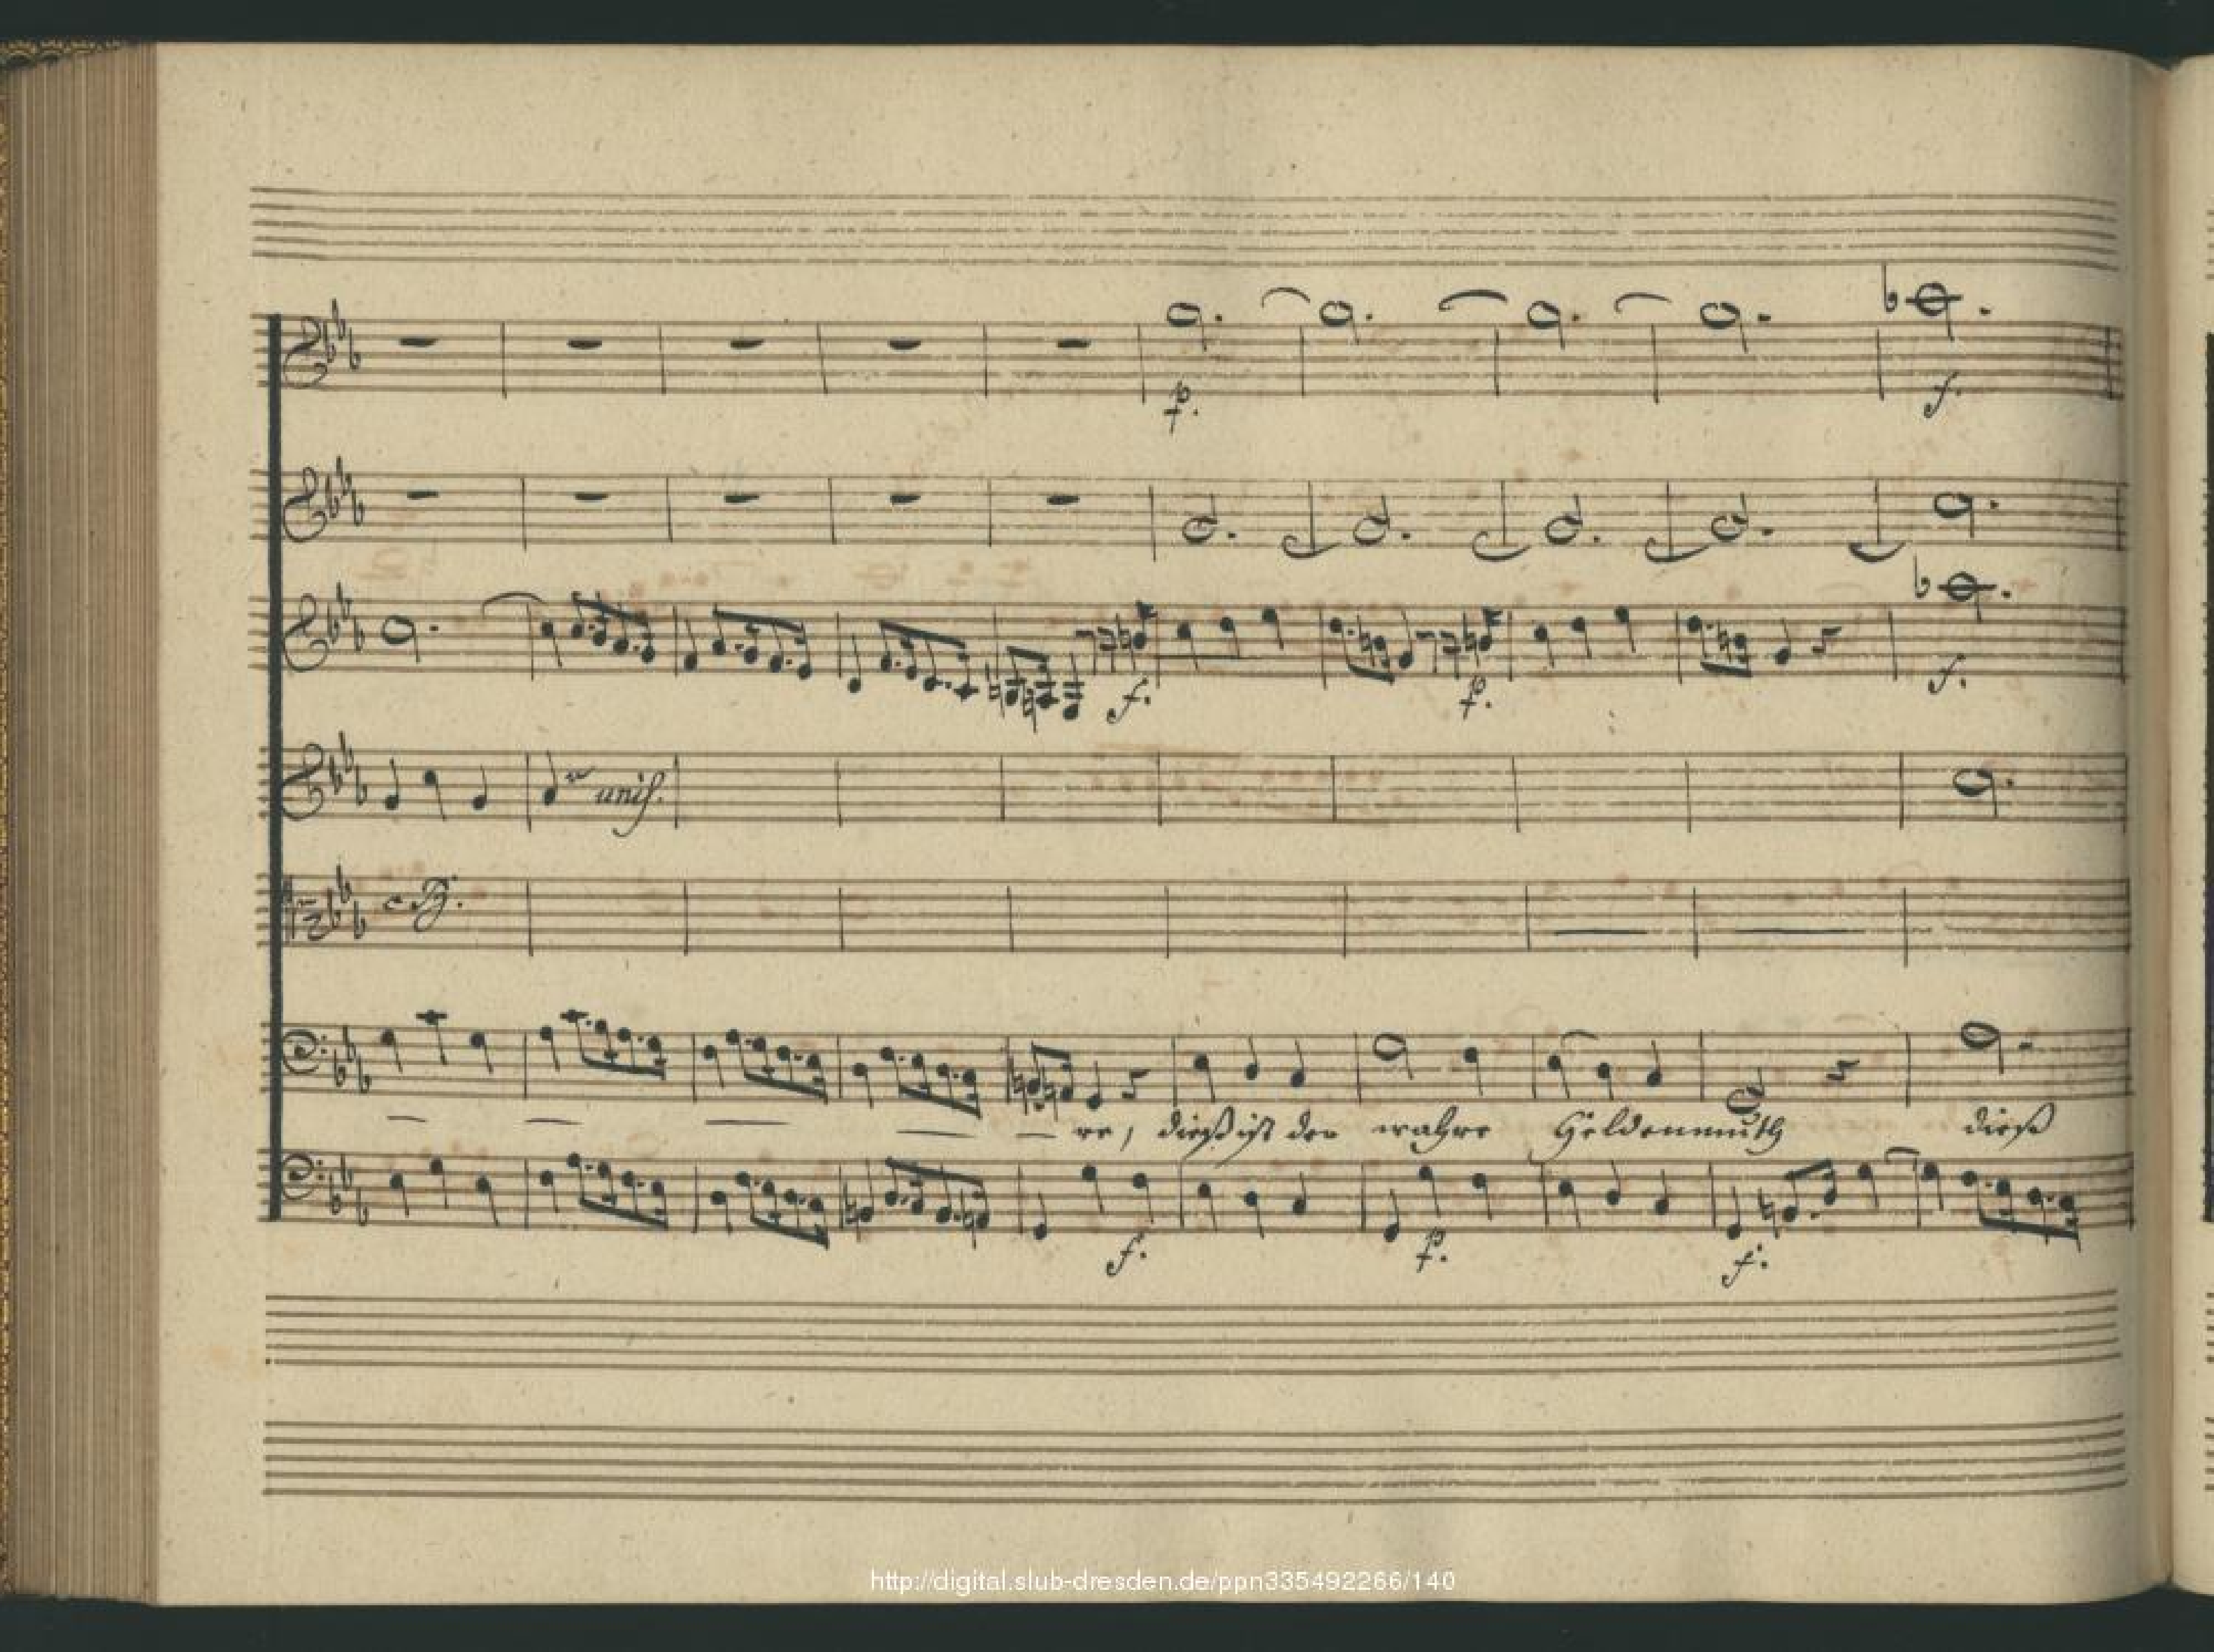 p.
f.
f.
p.
f.
unis.
c B.
re, dieß ist der wahre Heldenmuth dieß
f.
p.
f.
http://digital.slub-dresden.de/ppn335492266/140